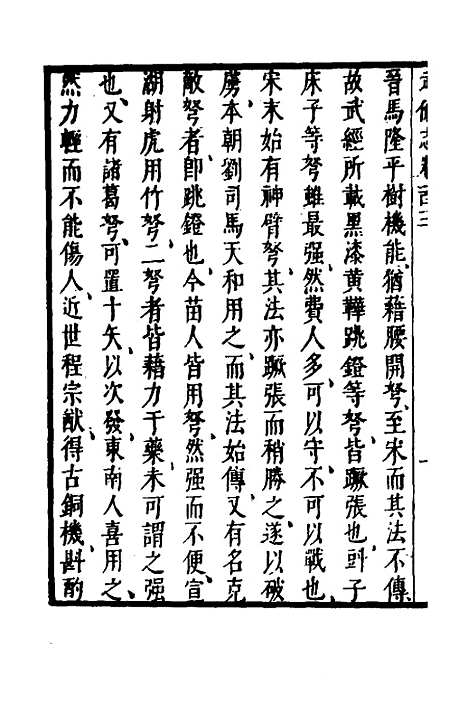 武備志卷百三
一
晉馬隆平樹機能、猶藉腰開弩、至宋而其法不傳、
故武經所載黑漆黃鞾跳鐙等弩、皆蹶張也、㪷子
床子等弩雖最强、然費人多、可以守、不可以戰也、
宋末始有神臂弩、其法亦蹶張而稍勝之、遂以破
虜、本朝劉司馬天和用之、而其法始傳、又有名克
敵弩者、卽跳鐙也、今苗人皆用弩、然强而不便、宣
湖射虎用竹弩、二弩者皆藉力于藥、未可謂之强
也、又有諸葛弩、可置十矢、以次發、東南人喜用之、
然力輕而不能傷人、近世程宗猷、得古銅機、斟酌